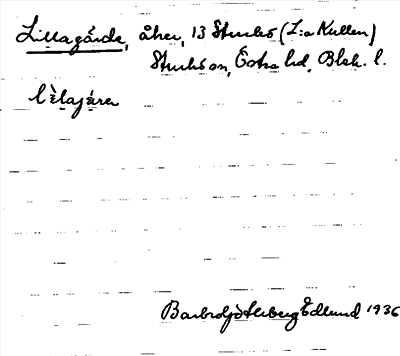 Lillagärde, åker, 13 Sturkö (L:a Kullen)
Sturkö sn, Östra hd, Blek. l.
lìlagǽrə
Edlund 1936